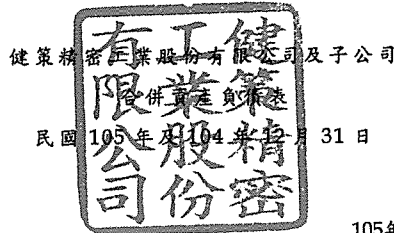 健策精密工業股份有限公司及子公司
合併資產負債表
民國105年及104年12月31日
健策精密
工業股份
有限公司
105年